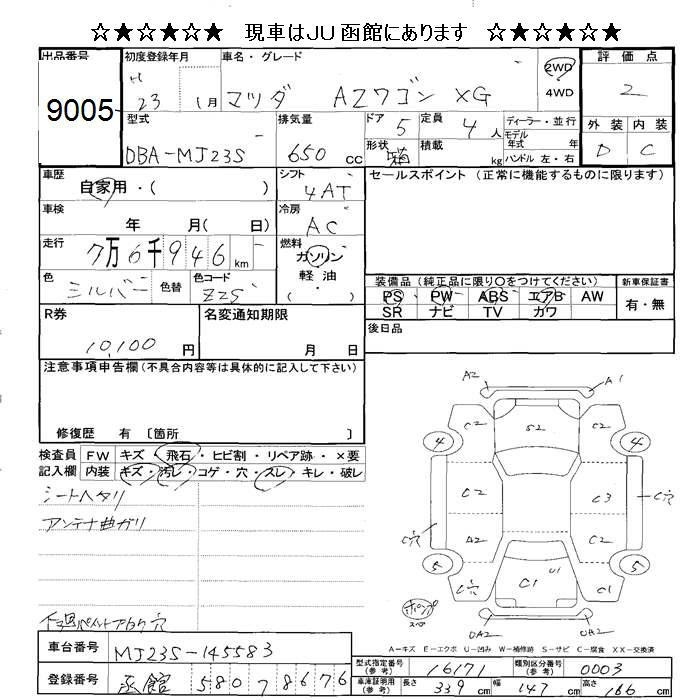 ☆★☆★☆★ 現車はJU函館にあります ☆★☆★☆★
出品番号 初度登録年月 車名・グレード 評価点
9005 H 23 1月 マツダ AZワゴン XG 2WD 4WD 2
型式 排気量 ドア 5 定員 4人 ディーラー・並行 外装 内装
DBA-MJ23S 650 cc 形状 箱 積載 kg モデル年式 年 ハンドル 左・右 D C
車歴 シフト セールスポイント(正常に機能するものに限ります)
自家用・( ) 4AT
車検 冷房
年 月( 日) AC
走行 7万6千946km 燃料 ガソリン
軽油・( )
色 シルバー 色替 色コード Z2S
装備品(純正品に限り○をつけてください) 新車保証書
PS PW ABS エアB AW 有・無
SR ナビ TV カワ
R券 名変通知期限 後日品
10,100円 月 日
注意事項申告欄(不具合内容等は具体的に記入して下さい)
修復歴 有 〔箇所 〕
検査員 FW キズ・飛石・ヒビ割・リペア跡・×要
記入欄 内装 キズ・汚レ・コゲ・穴・スレ・キレ・破レ
シートヘタリ
アンテナ曲ガリ
A2 A1
C2 S2 C2
4 4
C2 C3 C穴
C穴 A2 C2
5 U1 5
C穴 C1 C1
スペア
UA2 UA2
A-キズ E-エクボ U-凹み W-補修跡 S-サビ C-腐食 XX-交換済
車台番号 MJ23S-145583
型式指定番号(参考) 16171 類別区分番号(参考) 0003
登録番号 函館 580 8676
車庫証明用(参考) 長さ 339cm 幅 147cm 高さ 166cm